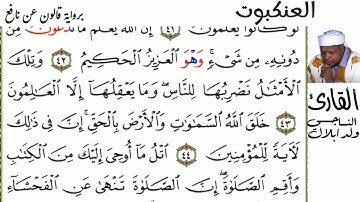 العنكبوت
برواية قالون عن نافع
لَوْ كَانُواْ يَعْلَمُونَ ٤١ إِنَّ اَللَّهَ يَعْلَمُ مَا تَدْعُونَ مِن
دُونِهِۦ مِن شَےْءٖ وَهْوَ اَلْعَزِيزُ اُلْحَكِيمُ ٤٢ وَتِلْكَ
اَلْأَمْثَٰلُ نَضْرِبُهَا لِلنَّاسِ وَمَا يَعْقِلُهَا إِلَّا اَلْعَٰلِمُونَ
٤٣ خَلَقَ اَللَّهُ اُلسَّمَٰوَٰتِ وَالْأَرْضَ بِالْحَقِّ إِنَّ فِي ذَٰلِكَ
لَأٓيَةٗ لِّلْمُؤْمِنِينَ ٤٤ اَتْلُ مَا أُوحِيَ إِلَيْكَ مِنَ اَلْكِتَٰبِ
وَأَقِمِ اِلصَّلَوٰةَ إِنَّ اَلصَّلَوٰةَ تَنْهَىٰ عَنِ اِلْفَحْشَآءِ
القارئ
الناجي
ولد ابلاك